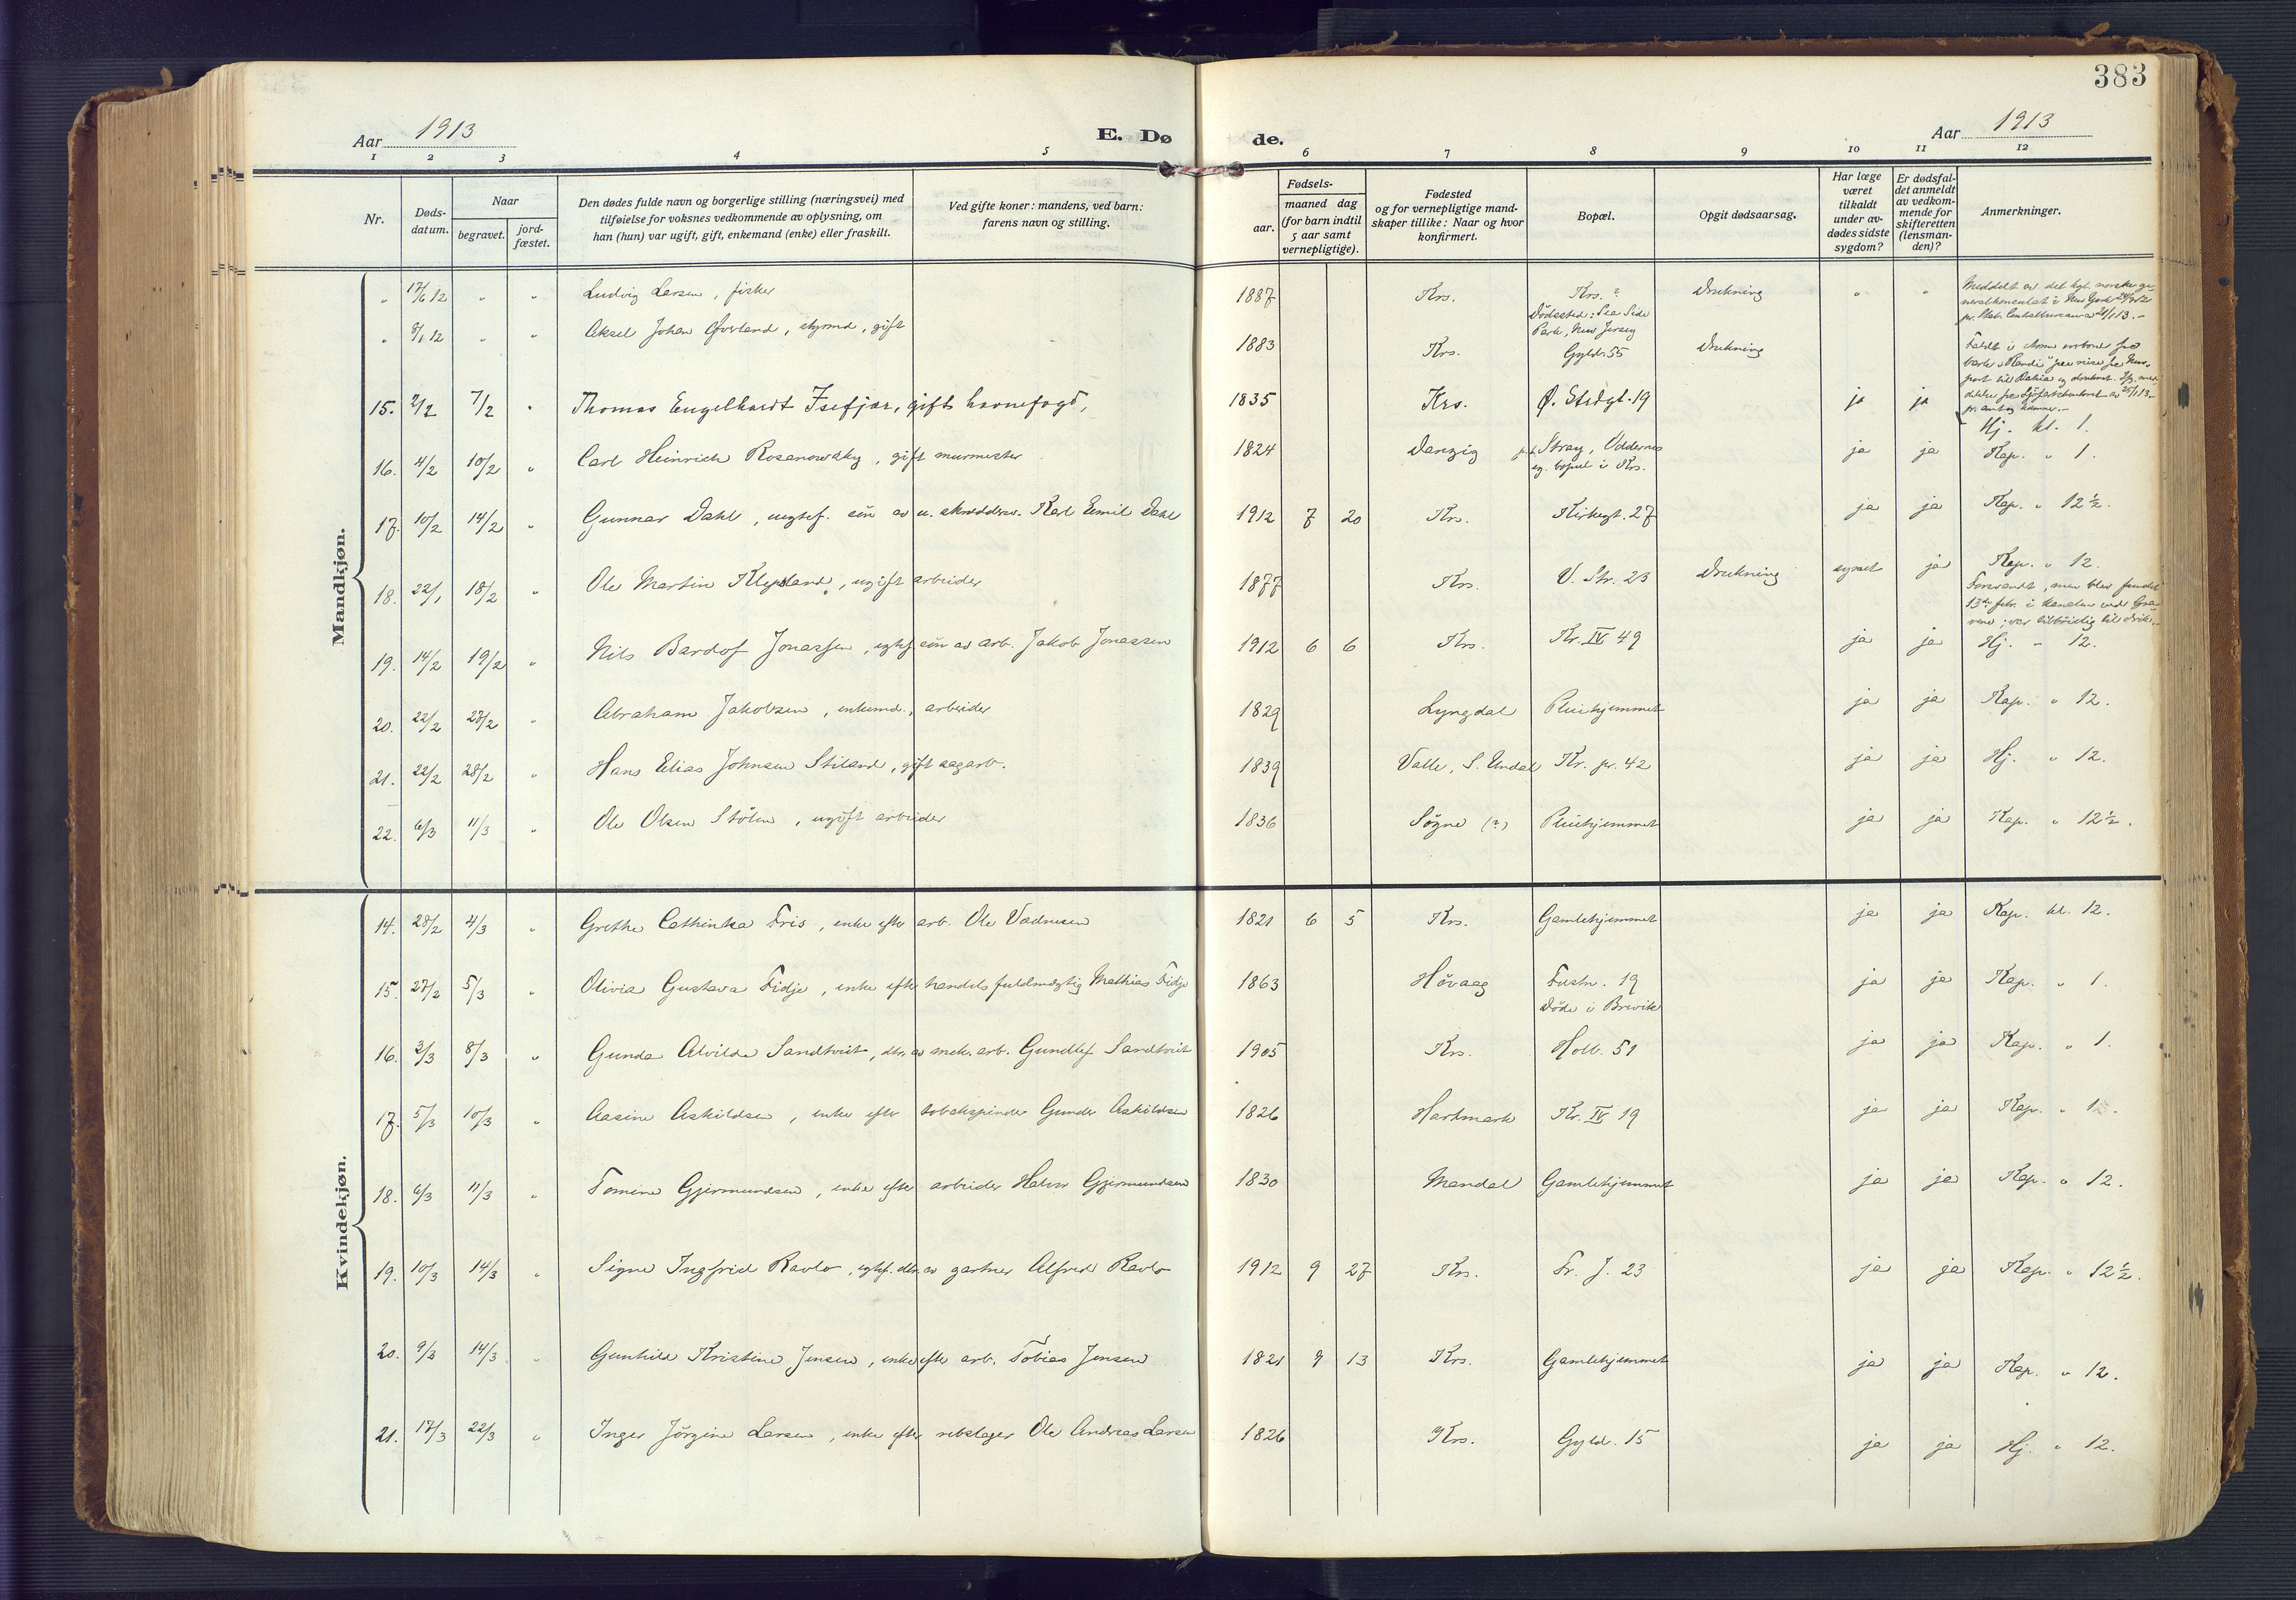 383
Aar 1913
E. Dø de.
Aar 1913
1 2 3 4 5 6 7 8 9 10 11 12
Nr.
Døds-
datum.
Naar
begravet.
jord-
fæstet.
Den dødes fulde navn og borgerlige stilling (næringsvei) med
tilføielse for voksnes vedkommende av oplysning, om
han (hun) var ugift, gift, enkemand (enke) eller fraskilt.
Ved gifte koner: mandens, ved barn:
farens navn og stilling.
Fødsels-
aar.
maaned dag
(for barn indtil
5 aar samt
vernepligtige).
Fødested
og for vernepligtige mand-
skaper tillike: Naar og hvor
konfirmert.
Bopæl.
Opgit dødsaarsag.
Har læge
været
tilkaldt
under av-
dødes sidste
sygdom?
Er dødsfal-
det anmeldt
av vedkom-
mende for
skifteretten
(lensman-
den)?
Anmerkninger.
Mandkjøn.
" 17/6 12 " " Ludvig Larsen, fisker 1887 Krs. Krs. ? Drukning " "
Dødssted: Sea Side
Park, New Jersey
Meddelt av det kgl. norske ge-
neralkonsulat i New York
" 8/1 12 " " Aksel Johan Øverland, styrmd, gift 1883 Krs. Gyld. 55 Drukning
15. 2/2 7/2 " Thomas Engelhardt Isefjær, gift havnefogd, 1835 Krs. Ø. Strdgt. 19 ja ja Hj. kl. 1.
16. 4/2 10/2 " Carl Heinrich Rosanowsky, gift murmester 1824 Danzig p.t. Stray, Oddernes ja ja Kap. " 1.
eg. bopæl i Krs.
17. 10/2 14/2 " Gunnar Dahl, uegtef. søn av u. skræddersv. Karl Emil Dahl 1912 7 20 Krs. Kirkegt. 27 ja ja Kap. " 12½.
18. 22/1 18/2 " Ole Martin Klepsland, ugift arbeider 1877 Krs. V. Str. 23 Drukning synet ja Kap. " 12.
Forsvandt, men blev fundet
13de febr. i kanalen ved Gra-
vene; var tilbøielig til drik.
19. 14/2 19/2 " Nils Bardof Jonassen, egtef søn av arb. Jakob Jonassen 1912 6 6 Krs. Kr. IV 49 ja ja Hj. " 12.
20. 22/2 27/2 " Abraham Jakobsen, enkemd., arbeider 1829 Lyngdal Pleiehjemmet ja ja Kap. " 12.
21. 22/2 28/2 " Hans Elias Johnsen Stiland, gift sagarb. 1839 Valle, S. Undal Kr. pr. 42 ja ja Hj. " 12.
22. 6/3 11/3 " Ole Olsen Stölen, ugift arbeider 1836 Søgne (?) Pleiehjemmet ja ja Kap. " 12½.
Kvindekjøn.
14. 28/2 4/3 " Grethe Cathinka Friis, enke efter arb. Ole 1821 6 5 Krs. Gamlehjemmet ja ja Kap. kl. 12.
15. 27/2 5/3 " Olivia Gustava Fidje, enke efter handelsfuldmægtig Mathias Fidje 1863 Høvaag Festn. 19 ja ja Kap. " 1.
Døde i Brevik
16. 3/3 8/3 " Gunda Alvilde Sandtveit, dtr. av mek. arb. Gundlef Sandtveit 1905 Krs. Holb. 51 ja ja Kap. " 1.
17. 5/3 10/3 " Aasine Askildsen, enke efter tobakspinder Gunder Askildsen 1826 Hartmark Kr. IV 19 ja ja Kap. " 1.
18. 6/3 11/3 " Tomine Gjermundsen, enke efter arbeider Halvor Gjermundsen 1830 Mandal Gamlehjemmet ja ja Kap. " 12.
19. 10/3 14/3 " Signe Ingfrid Ravlo, egtef. dtr. av gartner Alfred Ravlo 1912 9 27 Krs. Fr. J. 23 ja ja Kap. " 12½.
20. 9/3 14/3 " Gunhild Kristine Jensen, enke efter arb. Tobias Jensen 1821 9 13 Krs. Gamlehjemmet ja ja Kap. " 12.
21. 17/3 22/3 " Inger Jørgine Larsen, enke efter rebslager Ole Andreas Larsen 1826 Krs. Gyld. 15 ja ja Hj. " 12.